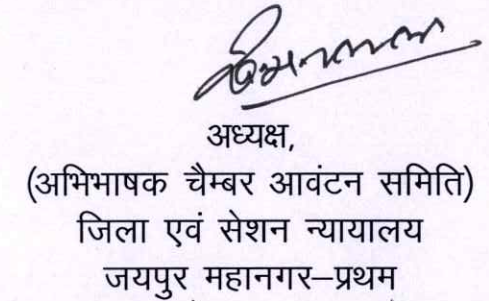 अध्यक्ष,
(अभिभाषक चैम्बर आवंटन समिति)
जिला एवं सेशन न्यायालय
जयपुर महानगर–प्रथम